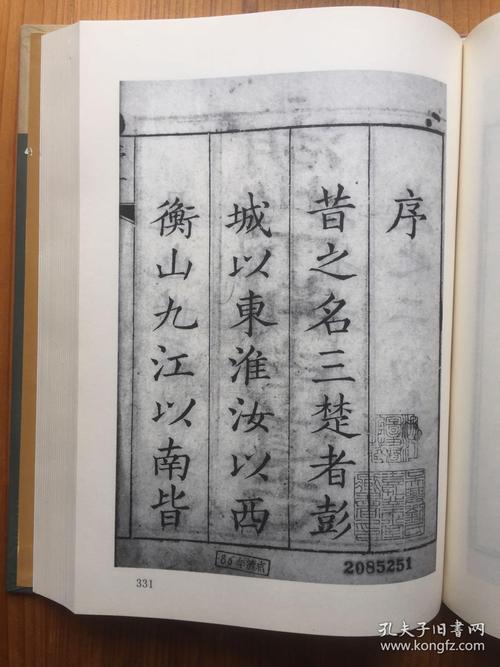 序
昔之名三楚者彭
城以東淮汝以西
衡山九江以南皆
2085251
331
孔夫子旧书网
www.kongfz.com